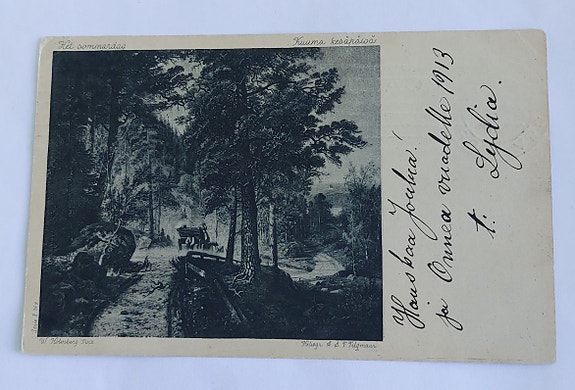 Het sommardag
Kuuma kesäpäivä
W. Holmberg Pinx.
Heliogr. A. B. F. Tilgmann
Hauskaa Joulua!
ja Onnea vuodelle 1913
t: Lydia.